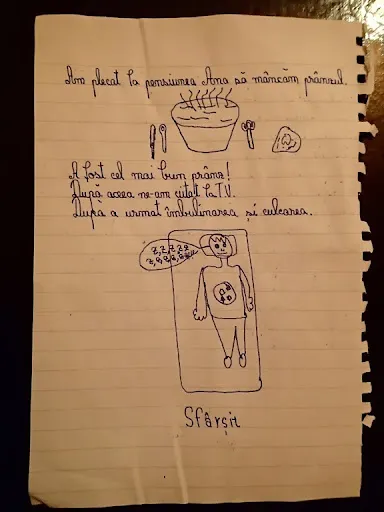 Am plecat la pensiunea Ana să mâncăm prânzul.
A fost cel mai bun prânz!
După aceea ne-am uitat la T.V.
După a urmat îmbulinarea și culcarea.
z, z, z, z, z
z, z, z, z, z
Sfârșit